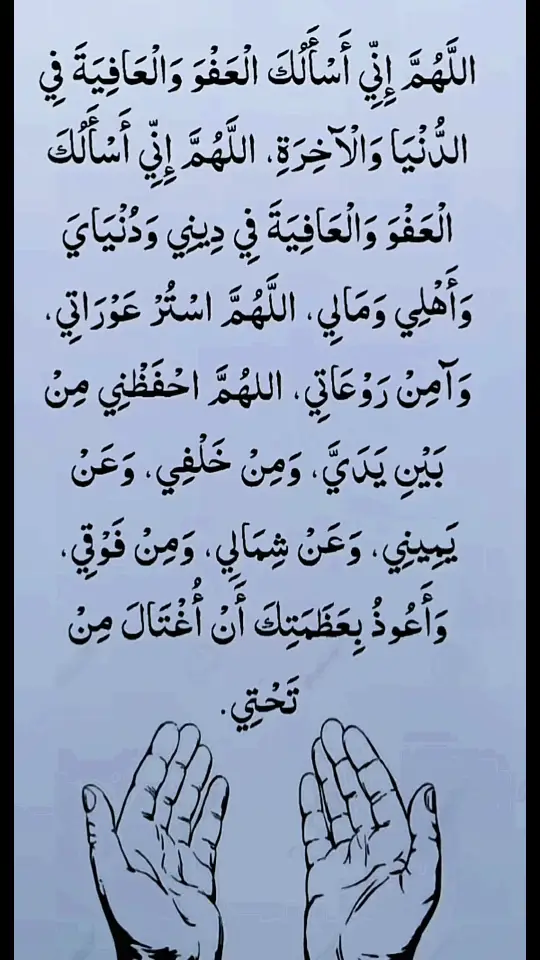 اللَّهُمَّ إِنِّي أَسْأَلُكَ الْعَفْوَ وَالْعَافِيَةَ فِي
الدُّنْيَا وَالْآخِرَةِ، اللَّهُمَّ إِنِّي أَسْأَلُكَ
الْعَفْوَ وَالْعَافِيَةَ فِي دِينِي وَدُنْيَايَ
وَأَهْلِي وَمَالِي، اللَّهُمَّ اسْتُرْ عَوْرَاتِي،
وَآمِنْ رَوْعَاتِي، اللهُمَّ احْفَظْنِي مِنْ
بَيْنِ يَدَيَّ، وَمِنْ خَلْفِي، وَعَنْ
يَمِينِي، وَعَنْ شِمَالِي، وَمِنْ فَوْقِي،
وَأَعُوذُ بِعَظَمَتِكَ أَنْ أُغْتَالَ مِنْ
تَحْتِي.